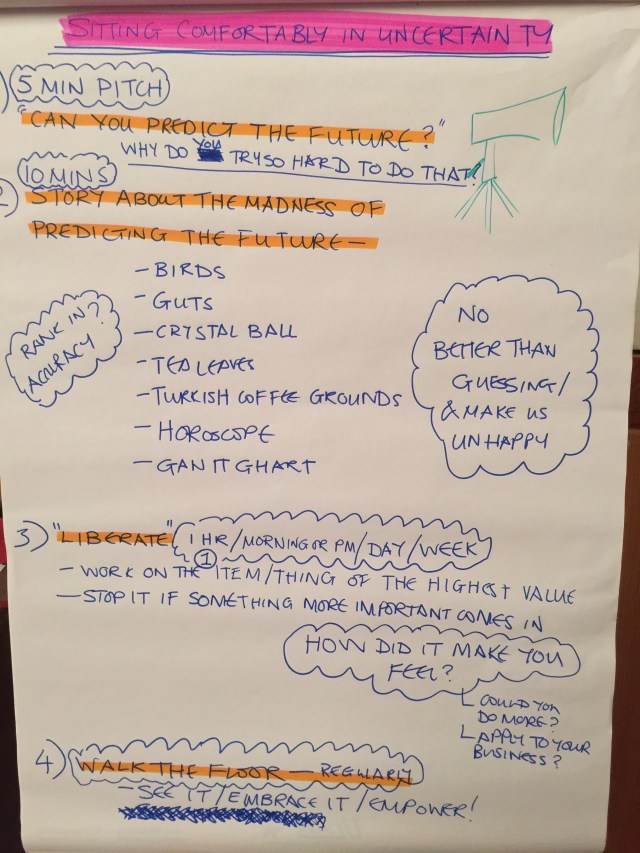 SITTING COMFORTABLY IN UNCERTAINTY
1) 5 MIN PITCH
"CAN YOU PREDICT THE FUTURE?"
WHY DO YOU TRY SO HARD TO DO THAT?
10 MINS
2) STORY ABOUT THE MADNESS OF
PREDICTING THE FUTURE —
- BIRDS
- GUTS
- CRYSTAL BALL
- TEA LEAVES
- TURKISH COFFEE GROUNDS
- HOROSCOPE
- GANTT CHART
RANK IN?
ACCURACY
NO
BETTER THAN
GUESSING/
& MAKE US
UNHAPPY
3) "LIBERATE" 1 HR/MORNING OR PM/DAY/WEEK
- WORK ON THE ① ITEM/THING OF THE HIGHEST VALUE
- STOP IT IF SOMETHING MORE IMPORTANT COMES IN
HOW DID IT MAKE YOU
FEEL?
COULD YOU
DO MORE?
APPLY TO YOUR
BUSINESS?
4) WALK THE FLOOR — REGULARLY
- SEE IT/EMBRACE IT/EMPOWER!